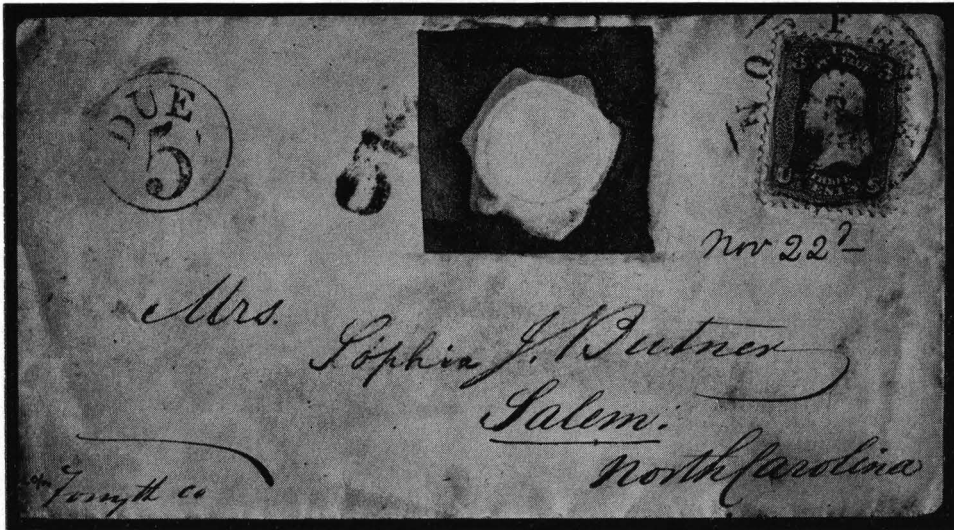 DUE
5
5
NO F
3 3
U S
Nov 22ᵈ
Mrs.
Sophia J. Butner
Salem.
North Carolina
Forsyth co